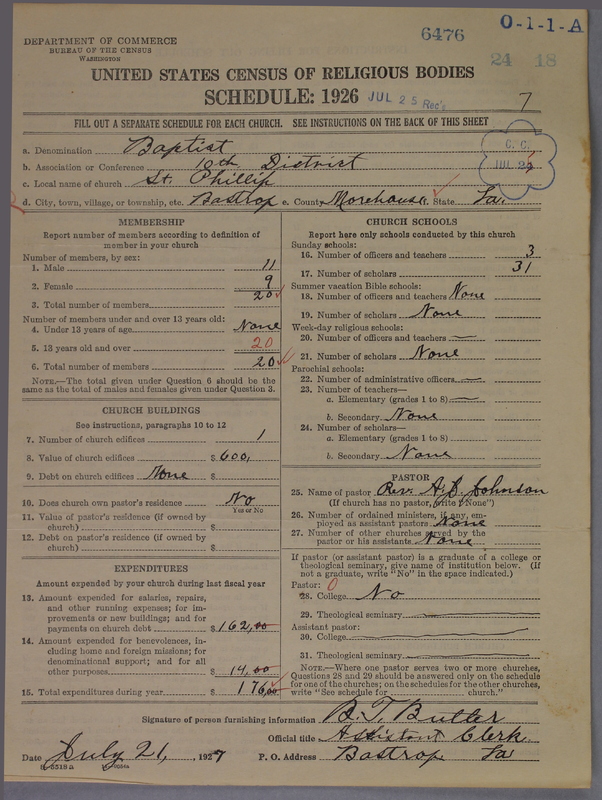 6476
O-1-1-A
DEPARTMENT OF COMMERCE
BUREAU OF THE CENSUS
WASHINGTON
24 18
UNITED STATES CENSUS OF RELIGIOUS BODIES
SCHEDULE: 1926 JUL 25 Rec'd 7
FILL OUT A SEPARATE SCHEDULE FOR EACH CHURCH. SEE INSTRUCTIONS ON THE BACK OF THIS SHEET
a. Denomination Baptist
b. Association or Conference 10th District
C. C.
JUL 2
c. Local name of church St. Phillip
d. City, town, village, or township, etc. Bastrop e. County Morehouse State La.
MEMBERSHIP
Report number of members according to definition of
member in your church
Number of members, by sex:
1. Male 11
2. Female 9
3. Total number of members 20
Number of members under and over 13 years old:
4. Under 13 years of age None
5. 13 years old and over 20
6. Total number of members 20
NOTE.—The total given under Question 6 should be the
same as the total of males and females given under Question 3.
CHURCH BUILDINGS
See instructions, paragraphs 10 to 12
7. Number of church edifices 1
8. Value of church edifices $ 600,
9. Debt on church edifices None $
10. Does church own pastor's residence No
Yes or No
11. Value of pastor's residence (if owned by
church) $
12. Debt on pastor's residence (if owned by
church) $
EXPENDITURES
Amount expended by your church during last fiscal year
13. Amount expended for salaries, repairs,
and other running expenses; for im-
provements or new buildings; and for
payments on church debt $ 162,00
14. Amount expended for benevolences, in-
cluding home and foreign missions; for
denominational support; and for all
other purposes 14,00
15. Total expenditures during year $ 176,00
CHURCH SCHOOLS
Report here only schools conducted by this church
Sunday schools:
16. Number of officers and teachers 3
17. Number of scholars 31
Summer vacation Bible schools:
18. Number of officers and teachers None
19. Number of scholars None
Week-day religious schools:
20. Number of officers and teachers —
21. Number of scholars None
Parochial schools:
22. Number of administrative officers —
23. Number of teachers—
a. Elementary (grades 1 to 8) —
b. Secondary None
24. Number of scholars—
a. Elementary (grades 1 to 8)
b. Secondary None
PASTOR
25. Name of pastor Rev. A. B. Johnson
(If church has no pastor, write "None")
26. Number of ordained ministers, if any, em-
ployed as assistant pastors None
27. Number of other churches served by the
pastor or his assistants None
If pastor (or assistant pastor) is a graduate of a college or
theological seminary, give name of institution below. (If
not a graduate, write "No" in the space indicated.)
Pastor: 0
28. College No
29. Theological seminary
Assistant pastor:
30. College
31. Theological seminary
NOTE.—Where one pastor serves two or more churches,
Questions 28 and 29 should be answered only on the schedule
for one of the churches; on the schedules for the other churches,
write "See schedule for church."
Signature of person furnishing information B. T. Butler
Official title Assistant Clerk
Date July 21, , 1927 P. O. Address Bastrop La